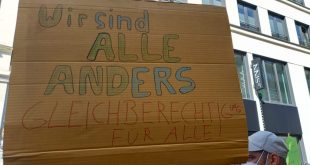 Wir sind
ALLE
ANDERS
GLEICHBERECHTIGUNG
FÜR ALLE!